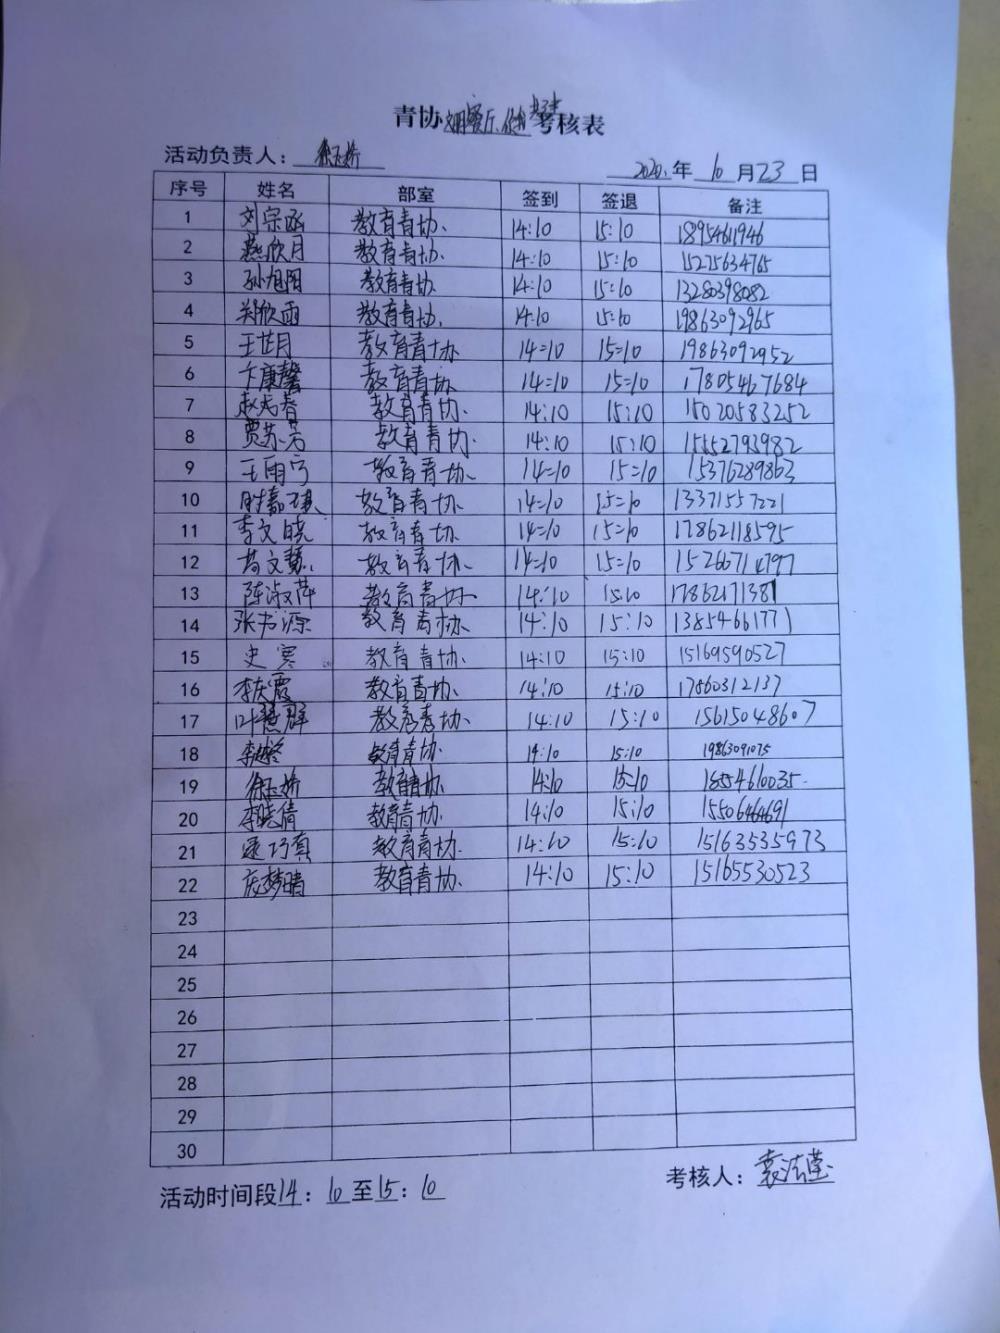 青协 考核表
活动负责人：徐玉娇
2020年10月23日
序号 姓名 部室 签到 签退 备注
1 刘宗函 教育青协 14:10 15:10 18954611946
2 燕欣月 教育青协 14:10 15:10 15275634765
3 孙旭阳 教育青协 14:10 15:10 13280398082
4 郑欣雨 教育青协 14:10 15:10 19863092965
5 王芷月 教育青协 14:10 15:10 19863092952
6 卞康馨 教育青协 14:10 15:10 17805467684
7 赵志春 教育青协 14:10 15:10 15020583252
8 贾苏芳 教育青协 14:10 15:10 15552793982
9 王雨宁 教育青协 14:10 15:10 15376289863
10 时嘉琪 教育青协 14:10 15:10 13371557221
11 李文晓 教育青协 14:10 15:10 17862118595
12 葛文慧 教育青协 14:10 15:10 15266714797
13 陈淑萍 教育青协 14:10 15:10 17862171381
14 张书源 教育青协 14:10 15:10 13854661771
15 史寒 教育青协 14:10 15:10 15169590527
16 李庆震 教育青协 14:10 15:10 17860312137
17 叶慧群 教育青协 14:10 15:10 15615048607
18 教育青协 14:10 15:10 19863091075
19 徐玉娇 教育青协 14:10 15:10 1854610035
20 李晓倩 教育青协 14:10 15:10 15506464691
21 逯巧真 教育青协 14:10 15:10 15163535973
22 庞梦晴 教育青协 14:10 15:10 15165530523
23
24
25
26
27
28
29
30
活动时间段14：10至15：10
考核人：袁洁莹